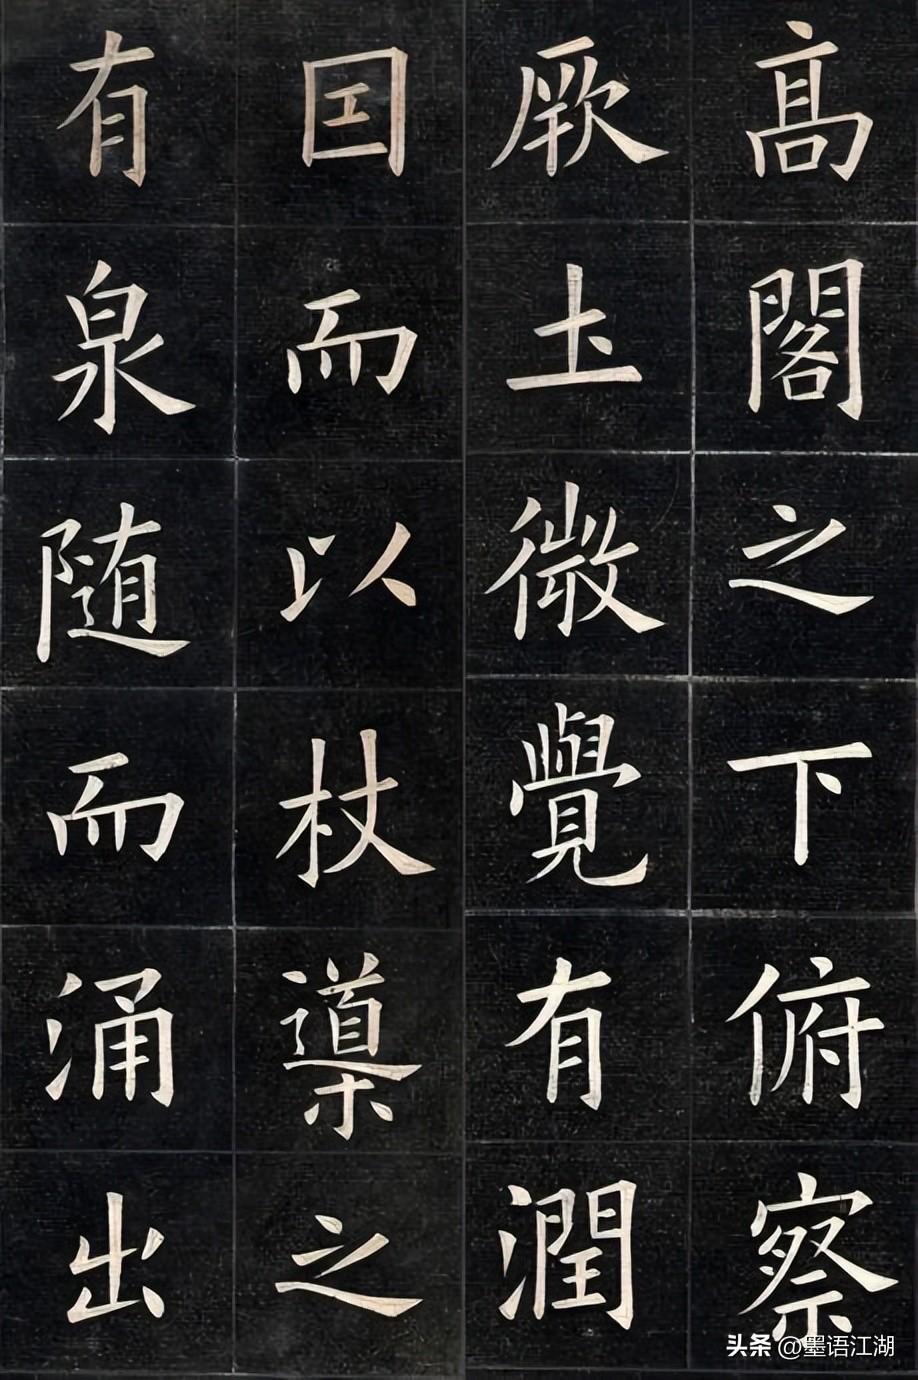 髙閣之下俯察
厥圡微覺有潤
囙而以杖導之
有泉随而涌出
头条 @墨语江湖